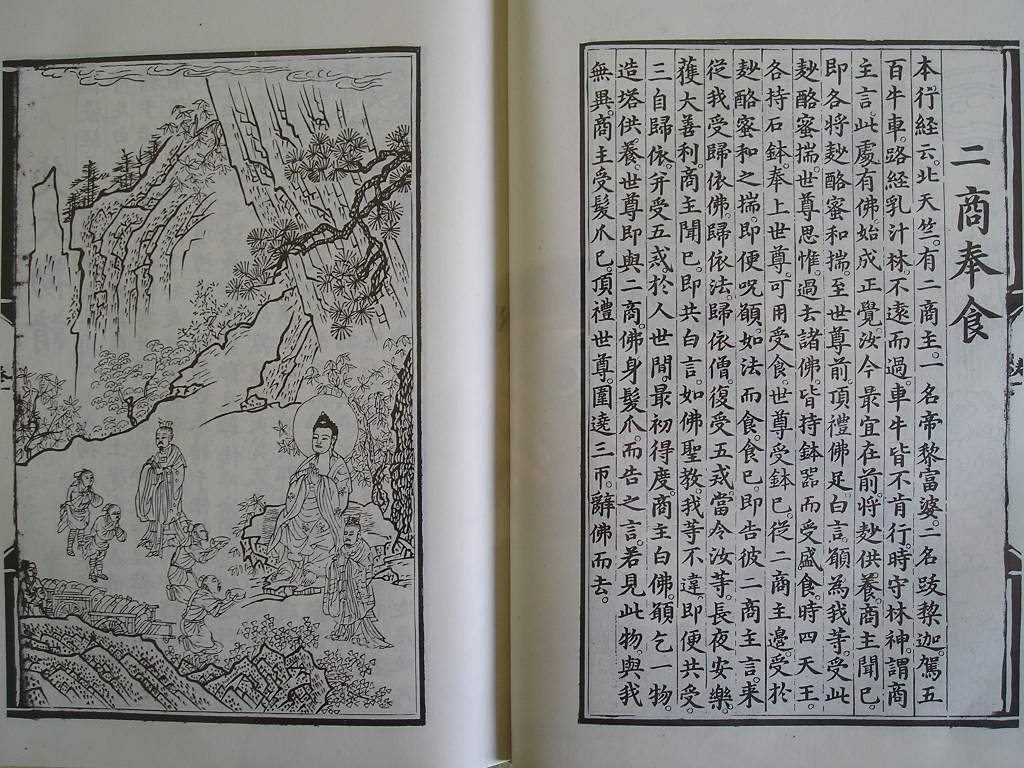 二商奉食
本行經云。北天竺。有二商主。一名帝黎富婆。二名跋黎迦。駕五
百牛車。路經乳汁林。不遠而過。車牛皆不肯行。時守林神。謂商
主言。此處有佛。始成正覺。汝今最宜在前。將麨供養。商主聞已
即各將麨酪蜜和揣。至世尊前。頂禮佛足。白言。願為我等。受此
麨酪蜜揣。世尊思惟。過去諸佛。皆持鉢器。而受盛食。時四天王。
各持石鉢。奉上世尊。可用受食。世尊受鉢已。從二商主邊。受於
麨酪蜜和之揣。即便呪願。如法而食。食已。即告彼二商主言。來
從我受歸依佛。歸依法。歸依僧。復受五戒。當令汝等。長夜安樂。
獲大善利。商主聞已。即共白言。如佛聖教。我等不違。即便共受
三自歸依。并受五戒。於人世間。最初得度。商主白佛。願乞一物。
造塔供養。世尊即與二商。佛身髮爪。而告之言。若見此物。與我
無異。商主受髮爪已。頂禮世尊。圍遶三帀。辭佛而去。